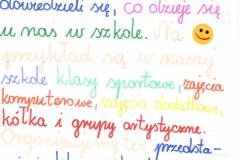 dowiedzieli się, co dzieje się
u nas w szkole. Na
przykład są w naszej
szkole klasy sportowe, zajęcia
komputerowe, zajęcia dodatkowe,
kółka i grupy artystyczne.
Organizujemy też przedsta-